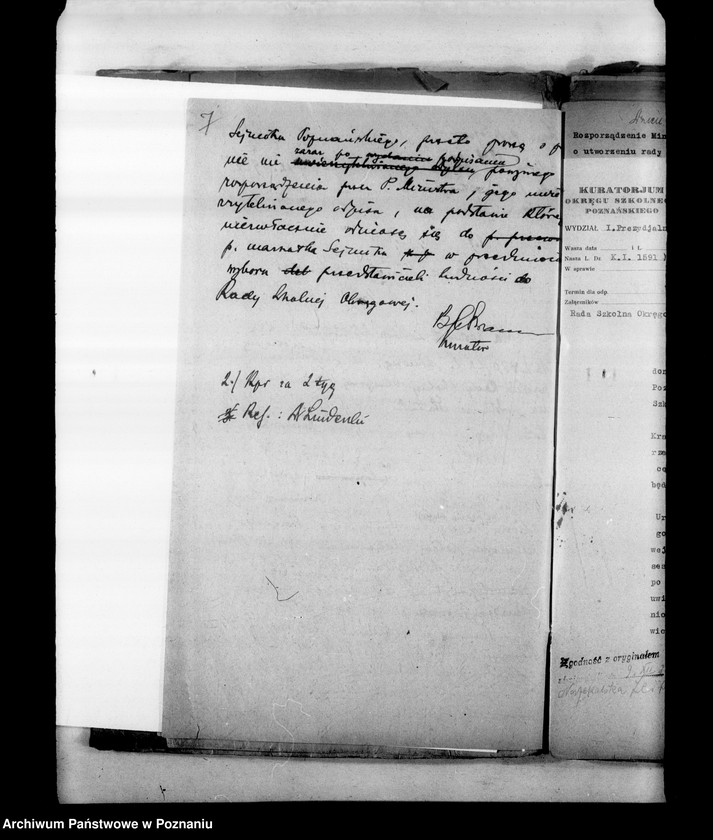 7
Sejmiku Poznańskiego, przeto proszę o
nie mi zaraz po wydaniu podpisaniu powyższego
rozporządzenia przez P. Ministra, jego uwie
rzytelnionego odpisu, na podstawie które
niezwłocznie odniosę się do
p. marszałka Sejmiku w przedmiocie
wyboru przedstawicieli ludności do
Rady Szkolnej Okręgowej.
Kurator
2./ Kpr za 2 tyg
Ref. :
Rozporządzenie Min
o utworzeniu rady
KURATORJUM
OKRĘGU SZKOLNEG
POZNAŃSKIEGO
WYDZIAŁ I.Prezydjaln
Wasza data i l.
Nasza l. Dz K.I. 1591
W sprawie
Termin dla odp.
Załączników
Rada Szkolna Okręgo
don
Poz
Szk
Kra
rze
cę
będ
Ur
go
wej
ses
po
uwi
nio
wic
Zgodność z oryginałem
Archiwum Państwowe w Poznaniu